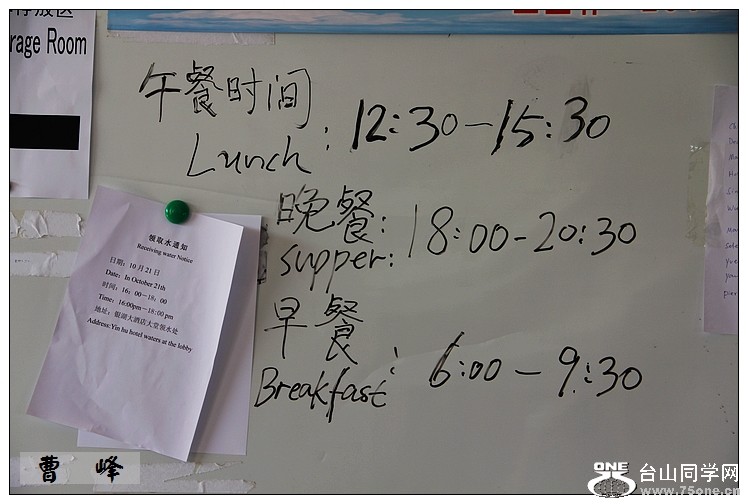 rage Room
午餐时间
Lunch : 12:30-15:30
晚餐:
supper: 18:00-20:30
早餐
Breakfast : 6:00-9:30
领取水通知
Receiving water Notice
日期: 10月21日
Date: In October 21th
时间: 16:00-18:00
Time: 16:00pm-18:00 pm
地址: 银湖大酒店大堂领水处
Address: Yin hu hotel waters at the lobby
曹 峰
ONE 台山同学网
www.75one.cn